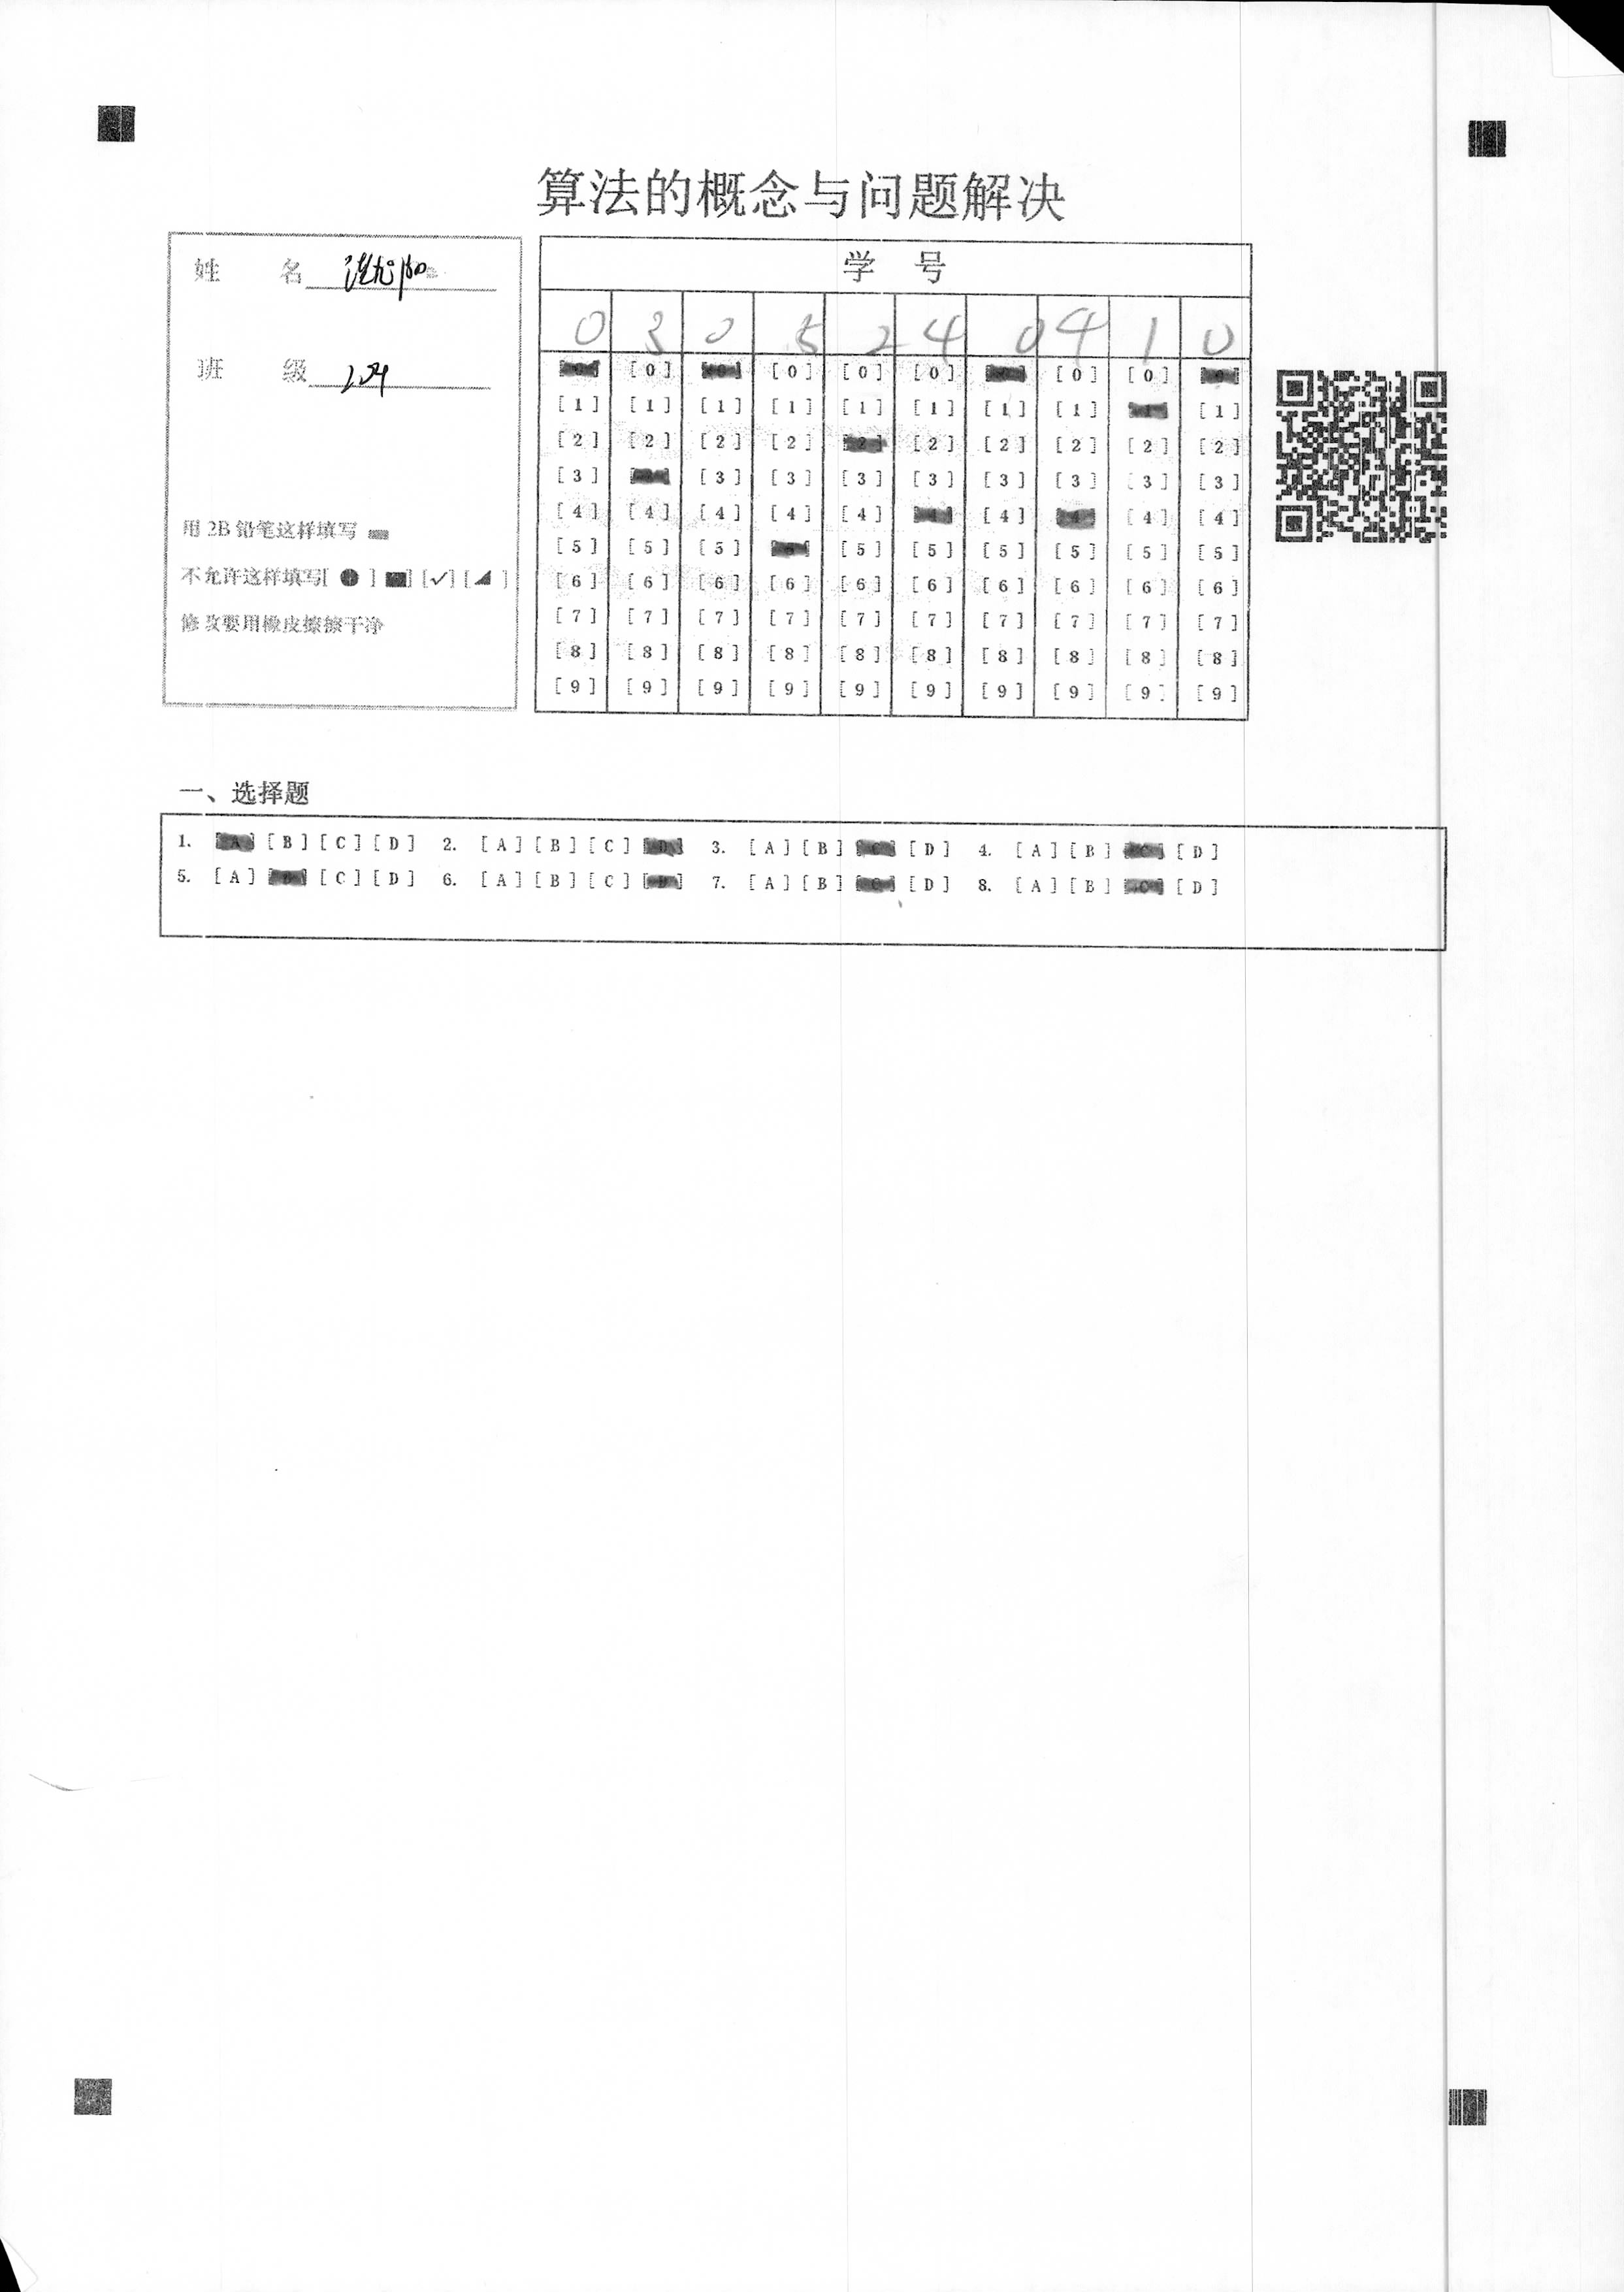 算法的概念与问题解决
姓 名
班 级 204
用 2B 铅笔这样填写
不允许这样填写[ ● ] [■] [✓] [◢ ]
修改要用橡皮擦擦干净
学 号
0 3 0 5 2 4 0 4 1 0
[0] [0] [0] [0] [0] [0] [0] [0] [0] [0]
[1] [1] [1] [1] [1] [1] [1] [1] [1] [1]
[2] [2] [2] [2] [2] [2] [2] [2] [2] [2]
[3] [3] [3] [3] [3] [3] [3] [3] [3] [3]
[4] [4] [4] [4] [4] [4] [4] [4] [4] [4]
[5] [5] [5] [5] [5] [5] [5] [5] [5] [5]
[6] [6] [6] [6] [6] [6] [6] [6] [6] [6]
[7] [7] [7] [7] [7] [7] [7] [7] [7] [7]
[8] [8] [8] [8] [8] [8] [8] [8] [8] [8]
[9] [9] [9] [9] [9] [9] [9] [9] [9] [9]
一、选择题
1. [A] [B] [C] [D] 2. [A] [B] [C] [D] 3. [A] [B] [C] [D] 4. [A] [B] [C] [D]
5. [A] [B] [C] [D] 6. [A] [B] [C] [D] 7. [A] [B] [C] [D] 8. [A] [B] [C] [D]